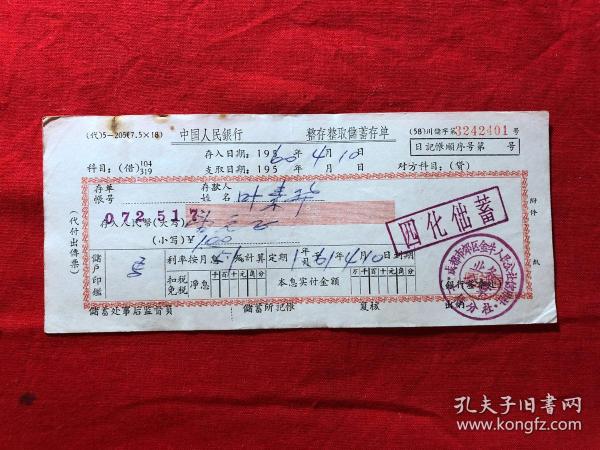 (代)5—205(7.5×18) 中国人民銀行 整存整取儲蓄存单 (58)川儲字第3242401号
存入日期：1960年4月10日 日記帳順序号第 号
科目：(借)104 319 支取日期：195 年 月 日 对方科目：(貸)
存单帳号 072517 存款人姓名 叶
存入人民幣(大写)
(小写)¥1.00
四化儲蓄
儲户印鑑 利率按月息 計算定期1年 61年4月10日到期
扣税 免税 净息 千百十元角分 本息实付金額 万千百十元角分
(代付出傳票)
附件 紙
儲蓄处事后监督員 儲蓄所記帳 复核 出納
孔夫子旧书网
www.kongfz.com